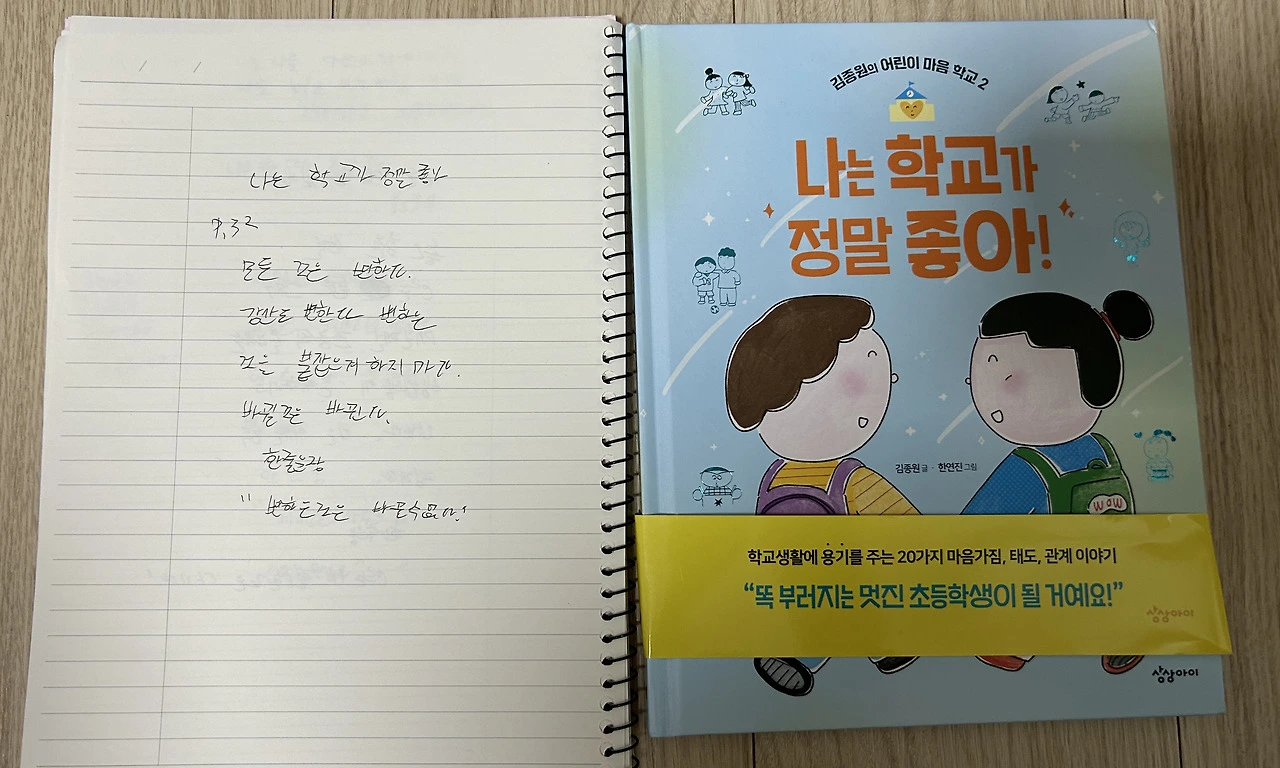 나는 학교가 정말 좋아
P.32
모든 것은 변한다.
강산도 변한다 변하는
것을 붙잡으려 하지 마라.
바뀔 것은 바뀐다.
한줄문장
" 변하는 것은
김종원의 어린이 마음 학교 2
나는 학교가
정말 좋아!
김종원 글 · 한연진 그림
WOW
학교생활에 용기를 주는 20가지 마음가짐, 태도, 관계 이야기
“똑 부러지는 멋진 초등학생이 될 거예요!”
상상아이
상상아이